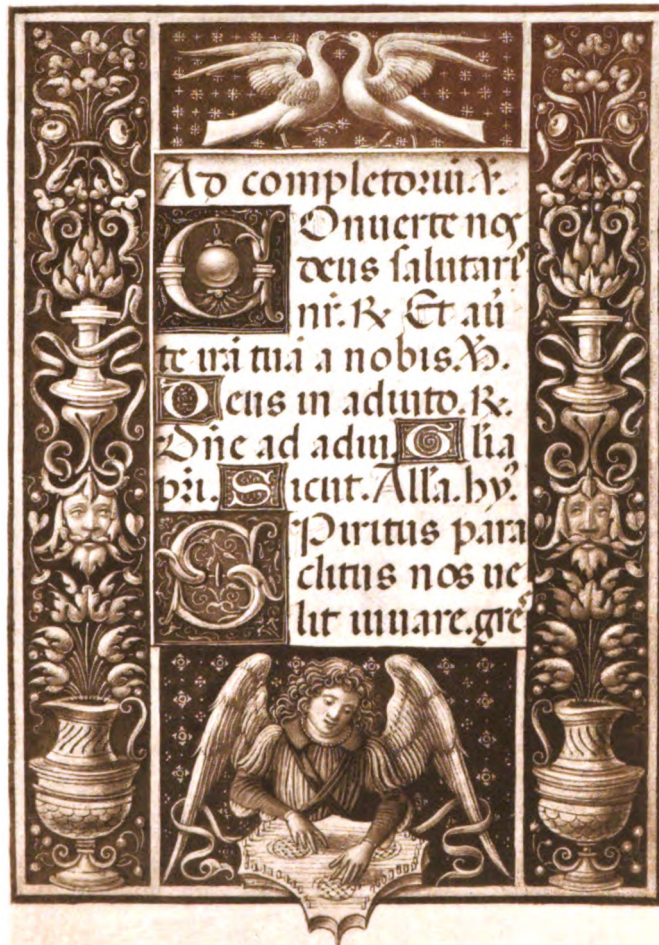 Ad completoriũ. ℣.
Conuerte nos
deus salutaris
nr̃. ℟. Et auer
te irã tuã a nobis. ℣.
Deus in adiuto. ℟.
Dñe ad adiu. Glia
pri. Sicut. Alla. hy.
Spiritus para
clitus nos ue
lit iuuare. gre